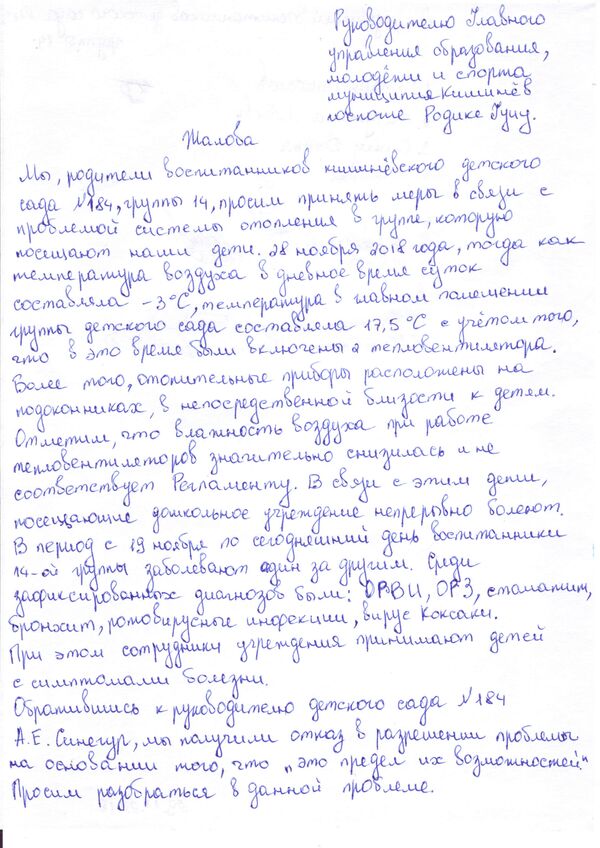 Руководителю Главного
управления образования,
молодёжи и спорта
муниципия Кишинёв
госпоже Родике Гуцу.
Жалоба
Мы, родители воспитанников кишинёвского детского
сада №184, группы 14, просим принять меры в связи с
проблемой системы отопления в группе, которую
посещают наши дети. 28 ноября 2018 года, тогда как
температура воздуха в дневное время суток
составляла -3°С, температура в главном помещении
группы детского сада составляла 17,5°С с учётом того,
что в это время были включены 2 тепловентилятора.
Более того, отопительные приборы расположены на
подоконниках, в непосредственной близости к детям.
Отметим, что влажность воздуха при работе
тепловентиляторов значительно снизилась и не
соответствует Регламенту. В связи с этим дети,
посещающие дошкольное учреждение непрерывно болеют.
В период с 19 ноября по сегодняшний день воспитанники
14-ой группы заболевают один за другим. Среди
зафиксированных диагнозов были: ОРВИ, ОРЗ, стоматит,
бронхит, ротовирусные инфекции, вирус Коксаки.
При этом сотрудники учреждения принимают детей
с симптомами болезни.
Обратившись к руководителю детского сада №184
А.Е. Синегур, мы получили отказ в разрешении проблемы
на основании того, что „это предел их возможностей."
Просим разобраться в данной проблеме.